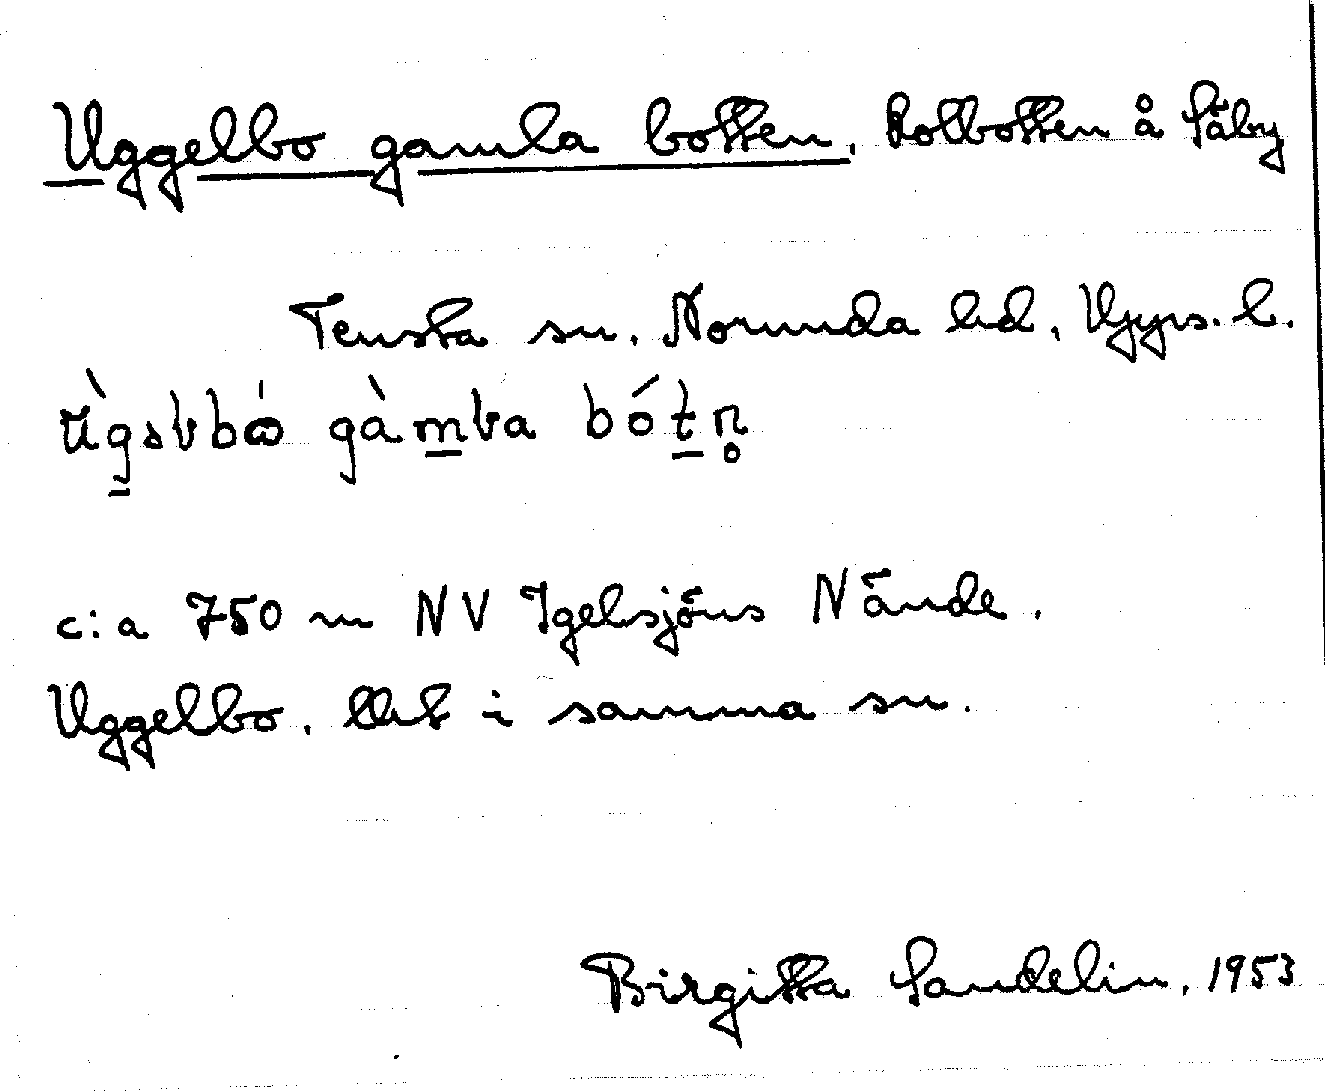 Uggelbo gamla botten, Kolbotten å Säby
Tensta sn. Norunda hd, Upps. l.
c:a 750 m NV Igelsjöns N ände.
Uggelbo, i samma sn.
Birgitta Sandelin, 1953